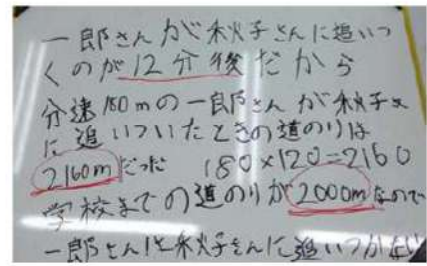 一郎さんが秋子さんに追いつ
くのが12分後だから
分速180mの一郎さんが秋子さ
に追いついたときの道のりは
2160mだった 180×120=2160
学校までの道のりが2000mなので
一郎さんは秋子さんに追いつかない